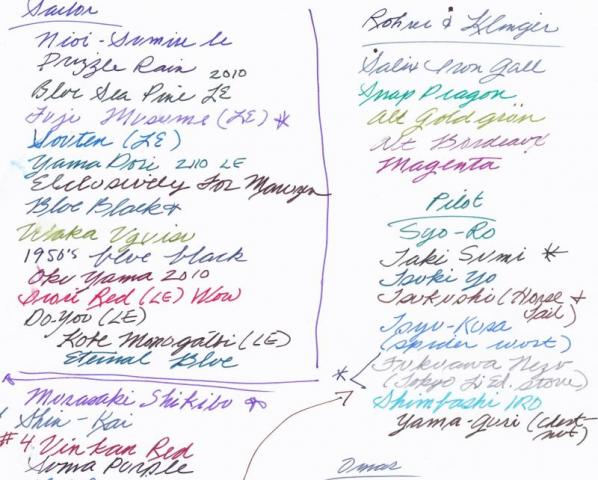 Sailor
Nioi-Sumire le
Puzzle Rain 2010
Blue Sea Pine LE
Fuji Musume (LE) *
Souten (LE)
Yama Dori 2010 LE
Exclusively For Maruzen
Blue Black
Waka Uguisu
1950's blue black
Oku Yama 2010
Irori Red (LE) Wow
Do-You (LE)
Kobe (LE)
Eternal Blue
Murasaki Shikibu
Shin-Kai
#4 Vinkan Red
Suma Purple
Rohrer & Klinger
Salix Iron Gall
Snap Dragon
Alt Goldgrün
Alt Bordeaux
Magenta
Pilot
Syo-Ro
Taki Sumi *
Tsuki Yo
Tsukushi (Horse
Tail)
Tsyu-Kusa
(spider wort)
* Fukuawa Nezu
(Tokyo Stone)
Shimbashi IRO
Yama-guri (chest-
nut)
Omas